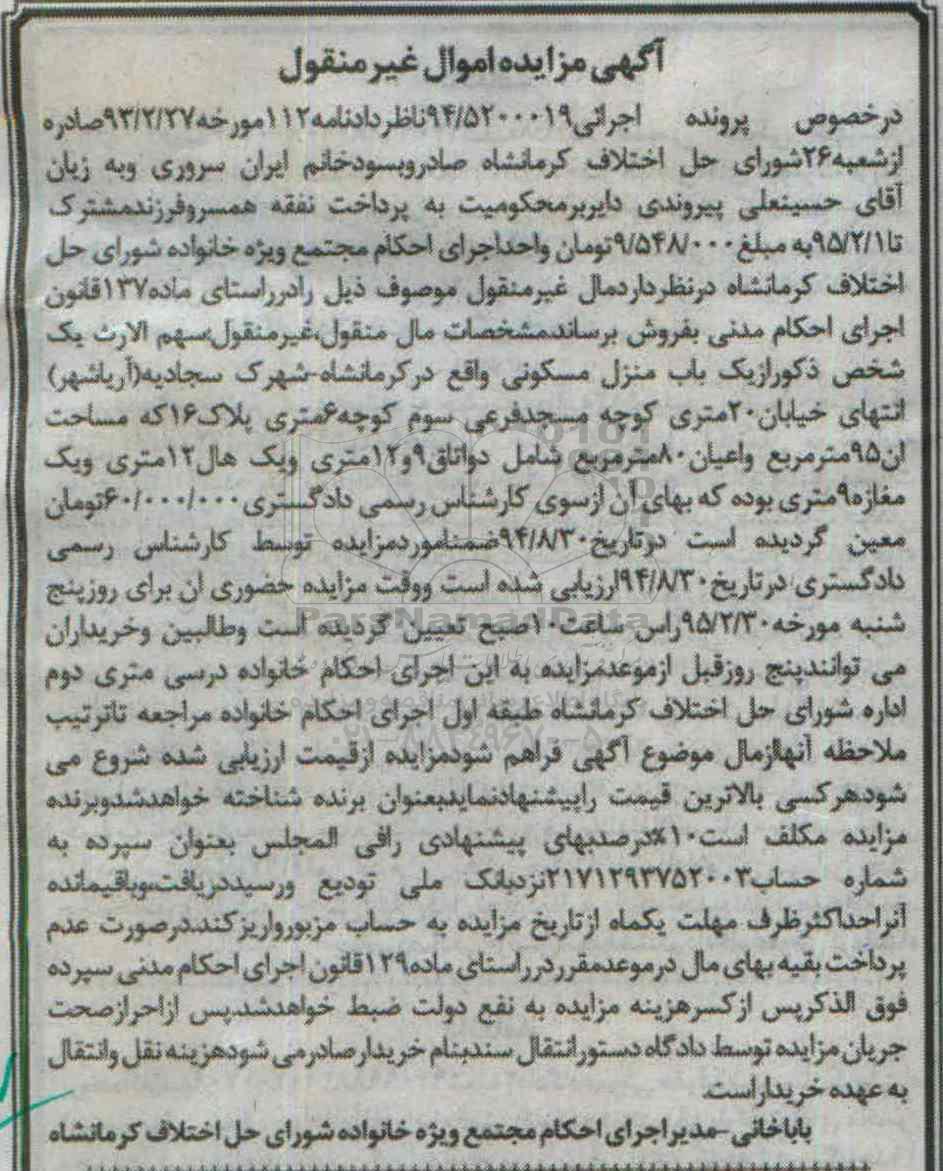 آگهی مزایده اموال غیر منقول
درخصوص پرونده اجرائی۹۴/۵۲۰۰۰۱۹ناظردادنامه۱۱۲مورخه۹۳/۲/۲۷صادره
ازشعبه۲۶شورای حل اختلاف کرمانشاه صادروبسودخانم ایران سروری وبه زیان
آقای حسینعلی پیروندی دایربرمحکومیت به پرداخت نفقه همسروفرزندمشترک
تا۹۵/۲/۱به مبلغ۹/۵۴۸/۰۰۰تومان واحداجرای احکام مجتمع ویژه خانواده شورای حل
اختلاف کرمانشاه درنظرداردمال غیرمنقول موصوف ذیل رادرراستای ماده۱۳۷قانون
اجرای احکام مدنی بفروش برساند.مشخصات مال منقول،غیرمنقول:سهم الارث یک
شخص ذکورازیک باب منزل مسکونی واقع درکرمانشاه-شهرک سجادیه(آریاشهر)
انتهای خیابان۲۰متری کوچه مسجدفرعی سوم کوچه۶متری پلاک۱۶که مساحت
ان۹۵مترمربع واعیان۸۰مترمربع شامل دواتاق۹و۱۲متری ویک هال۱۲متری ویک
مغازه۹متری بوده که بهای آن ازسوی کارشناس رسمی دادگستری۶۰/۰۰۰/۰۰۰تومان
معین گردیده است درتاریخ۹۴/۸/۳۰ضمناموردمزایده توسط کارشناس رسمی
دادگستری درتاریخ۹۴/۸/۳۰ارزیابی شده است ووقت مزایده حضوری ان برای روزپنج
شنبه مورخه۹۵/۲/۳۰راس ساعت۱۰صبح تعیین گردیده است وطالبین وخریداران
می توانندپنج روزقبل ازموعدمزایده به این اجرای احکام خانواده درسی متری دوم
اداره شورای حل اختلاف کرمانشاه طبقه اول اجرای احکام خانواده مراجعه تاترتیب
ملاحظه آنهاازمال موضوع آگهی فراهم شودمزایده ازقیمت ارزیابی شده شروع می
شودهرکسی بالاترین قیمت راپیشنهادنمایدبعنوان برنده شناخته خواهدشدوبرنده
مزایده مکلف است۱۰%درصدبهای پیشنهادی رافی المجلس بعنوان سپرده به
شماره حساب۲۱۷۱۲۹۳۷۵۲۰۰۳نزدبانک ملی تودیع ورسیددریافت،وباقیمانده
آنراحداکثرظرف مهلت یکماه ازتاریخ مزایده به حساب مزبورواریزکند.درصورت عدم
پرداخت بقیه بهای مال درموعدمقرردرراستای ماده۱۲۹قانون اجرای احکام مدنی سپرده
فوق الذکرپس ازکسرهزینه مزایده به نفع دولت ضبط خواهدشد.پس ازاحرازصحت
جریان مزایده توسط دادگاه دستورانتقال سندبنام خریدارصادرمی شودهزینه نقل وانتقال
به عهده خریداراست.
باباخانی-مدیراجرای احکام مجتمع ویژه خانواده شورای حل اختلاف کرمانشاه
ParsNamadData